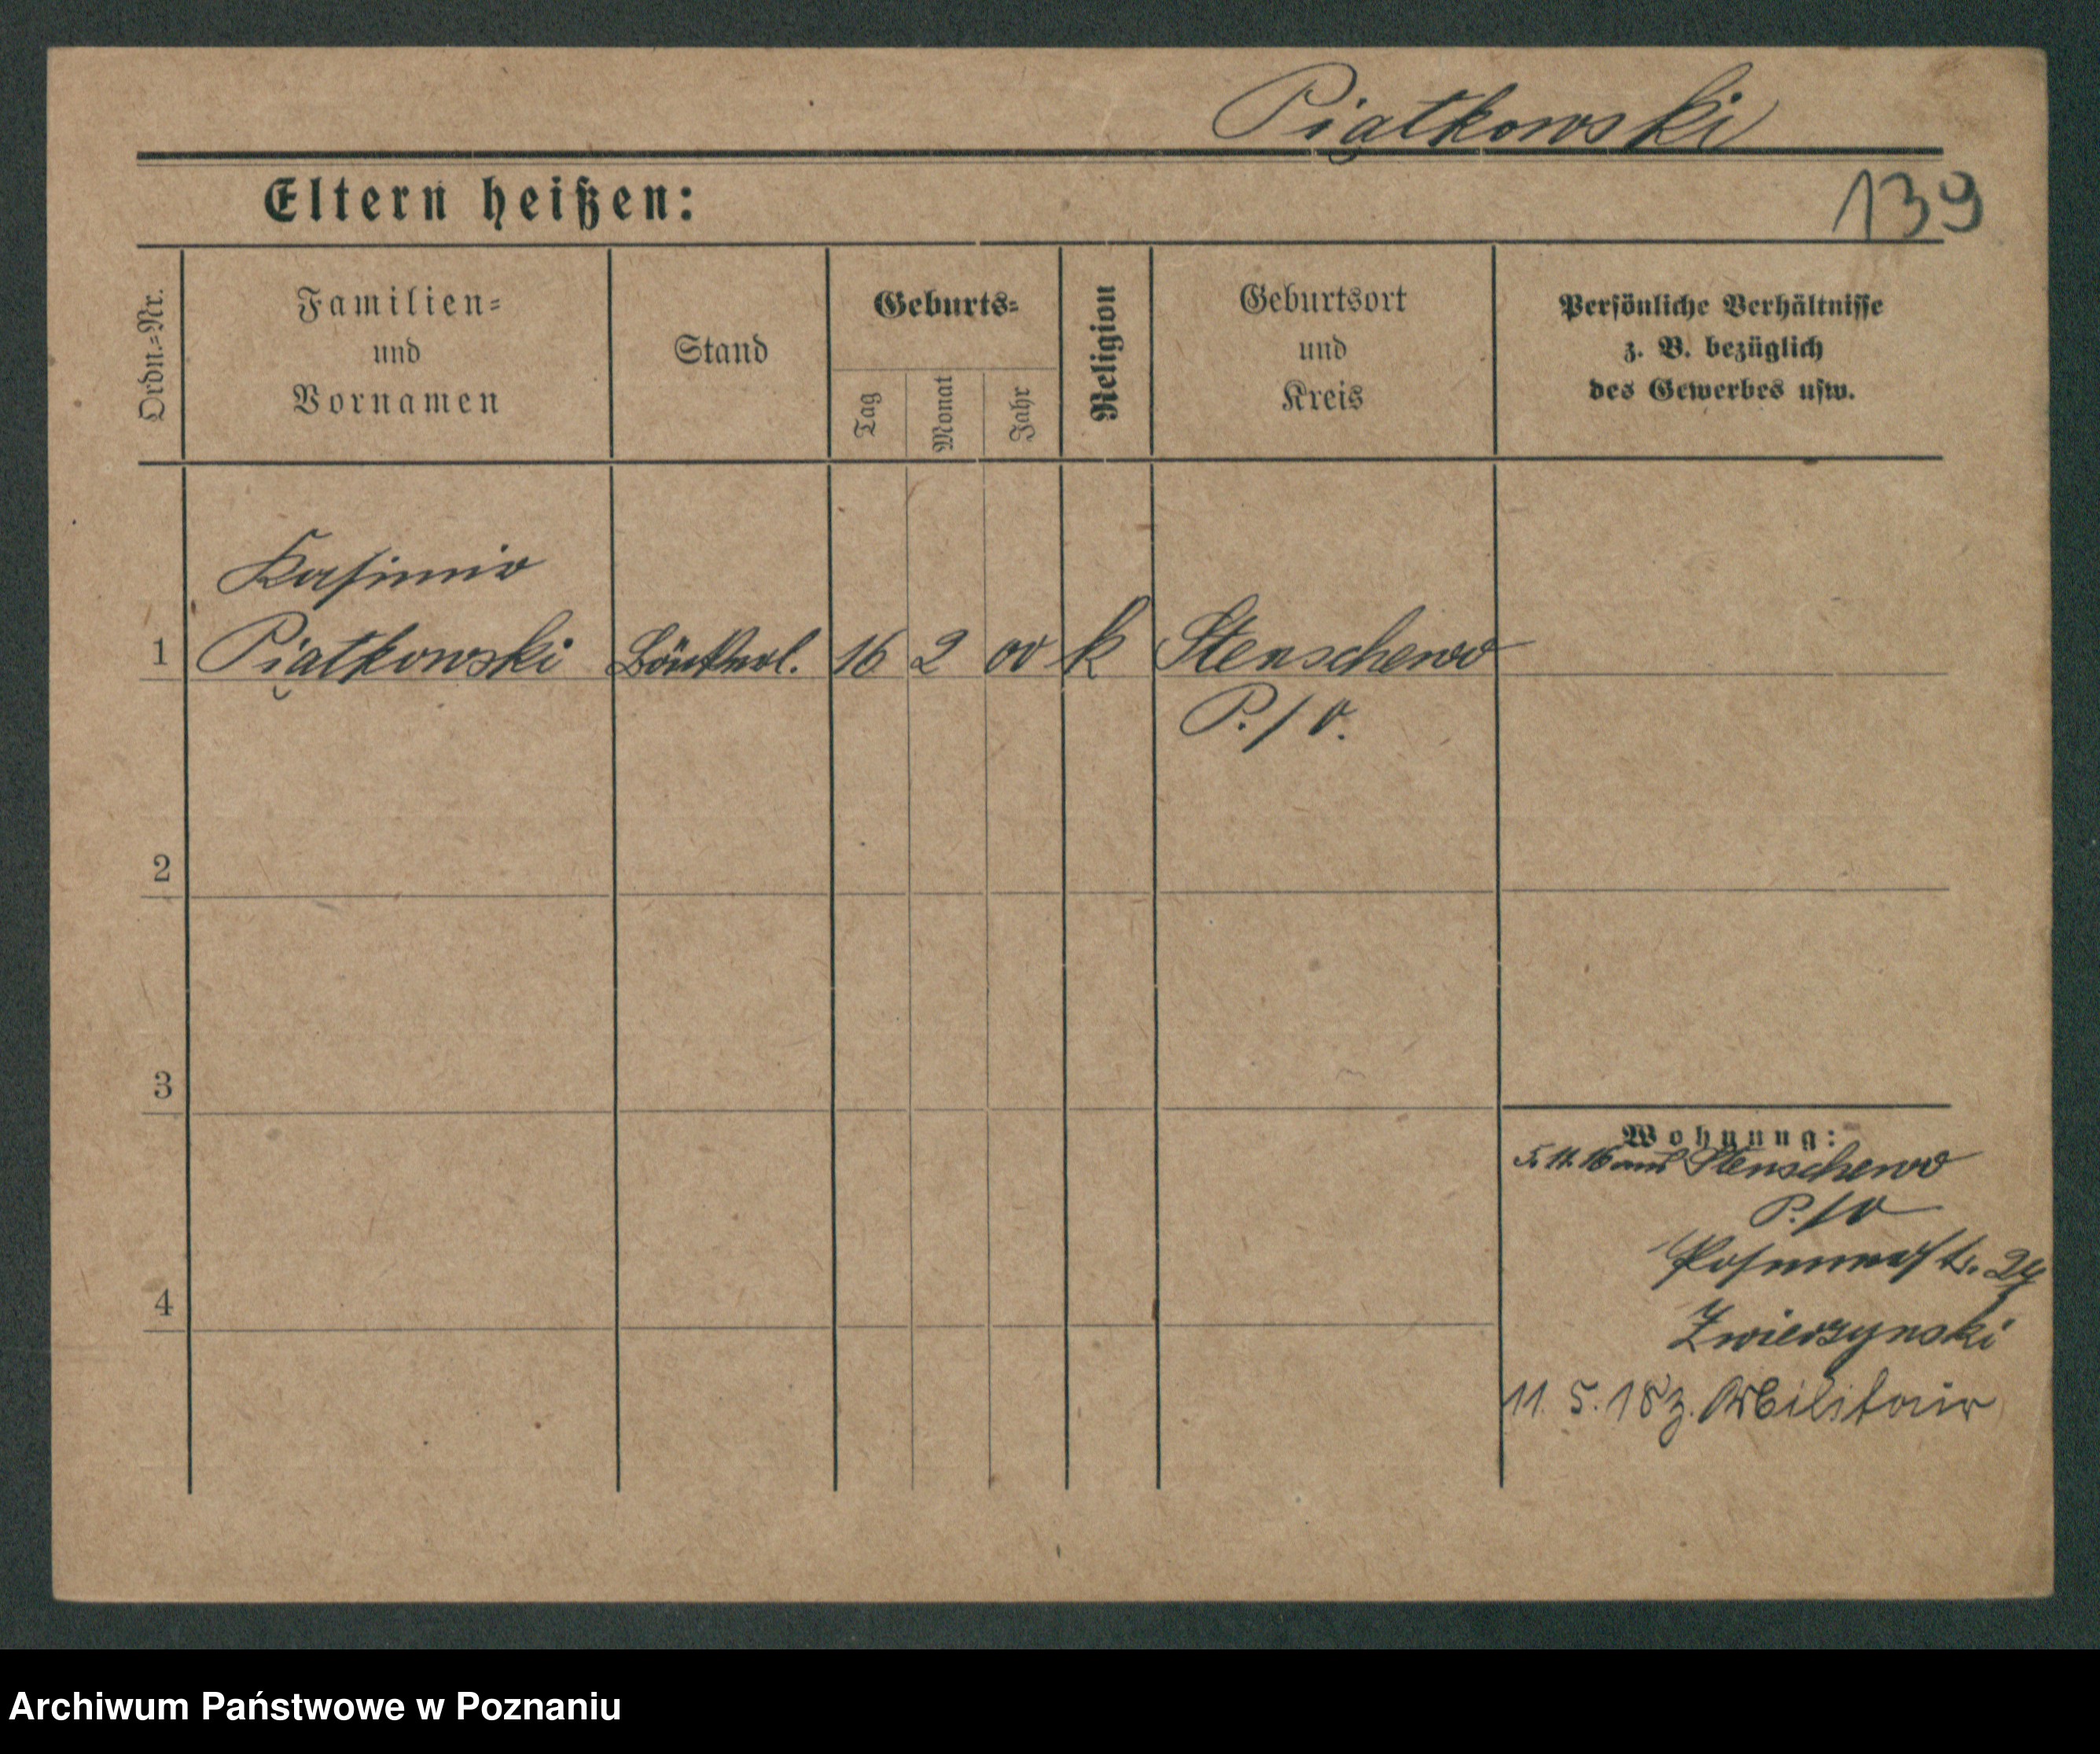 Piątkowski
139
Eltern heißen:
Ordn.-Nr.
Familien-
und
Vornamen
Stand
Geburts-
Tag
Monat
Jahr
Religion
Geburtsort
und
Kreis
Persönliche Verhältnisse
z. B. bezüglich
des Gewerbes usw.
Kasimir
1 Piątkowski 16 2 00 k Stenschewo
P./O.
2
3
4
Wohnung:
5. 11. 16 aus Stenschewo
P./O
24
Zwierzynski
11. 5. 18 z. Militair
Archiwum Państwowe w Poznaniu